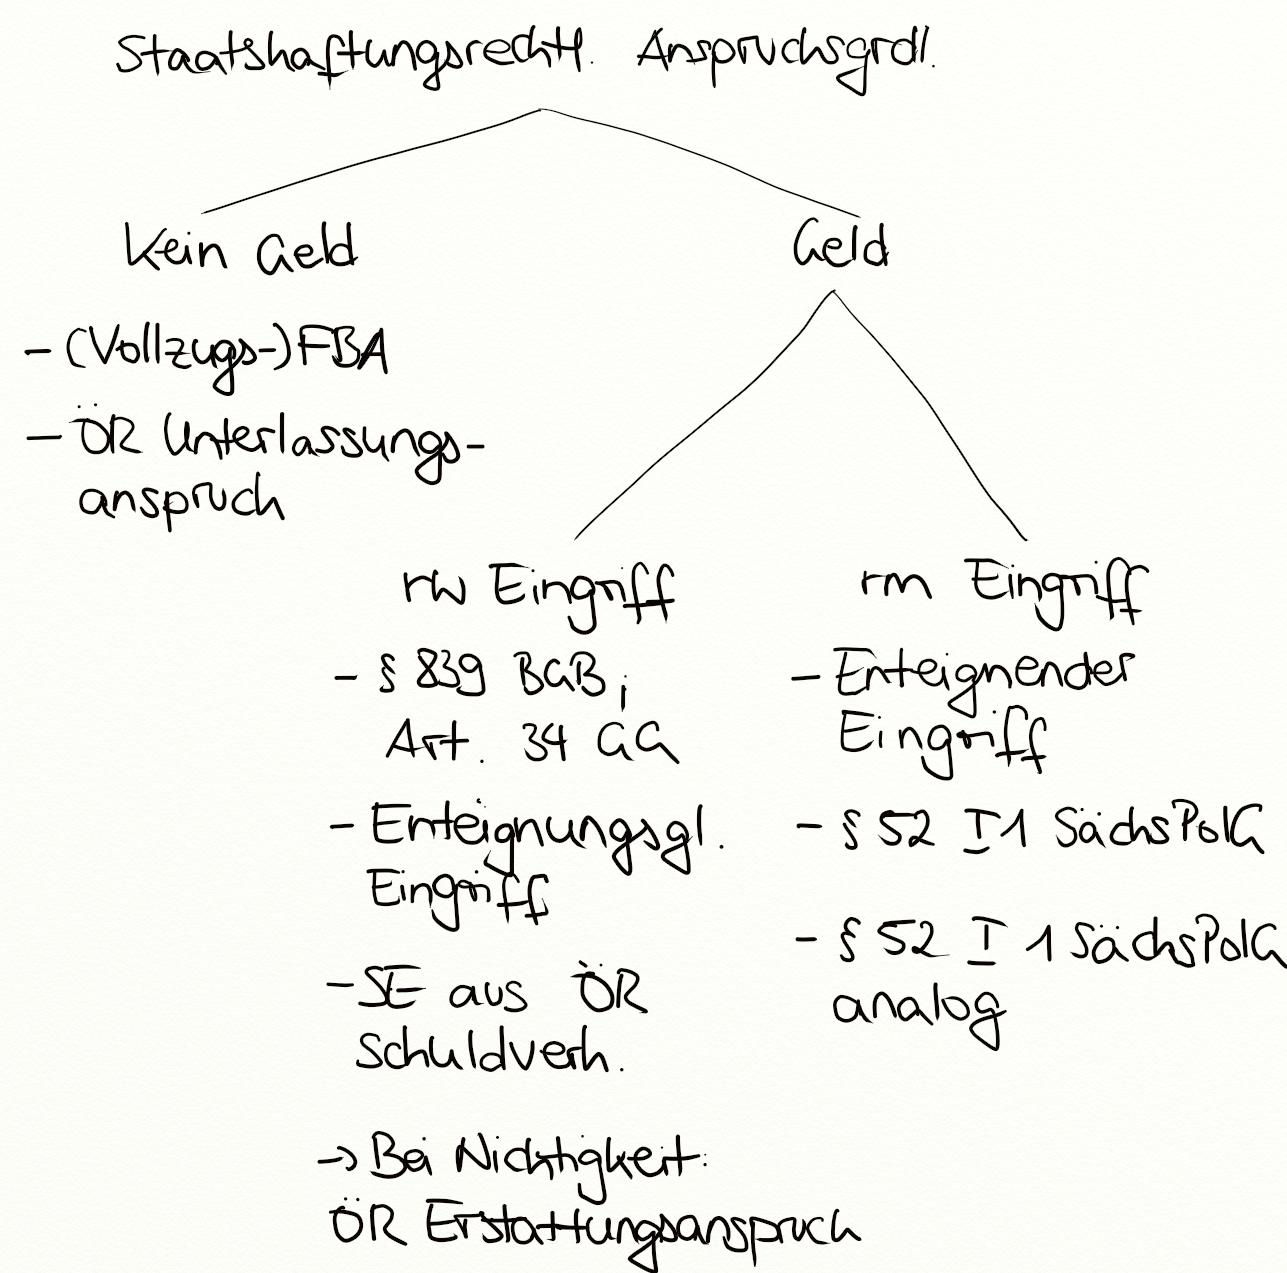 Staatshaftungsrechtl. Anspruchsgrdl.
Kein Geld
Geld
- (Vollzugs-)FBA
- ÖR Unterlassungs-
anspruch
rw Eingriff
- § 839 BGB,
Art. 34 GG
- Enteignungsgl.
Eingriff
- SE aus ÖR
Schuldverh.
→ Bei Nichtigkeit:
ÖR Erstattungsanspruch
rm Eingriff
- Enteignender
Eingriff
- § 52 I 1 SächsPolG
- § 52 I 1 SächsPolG
analog